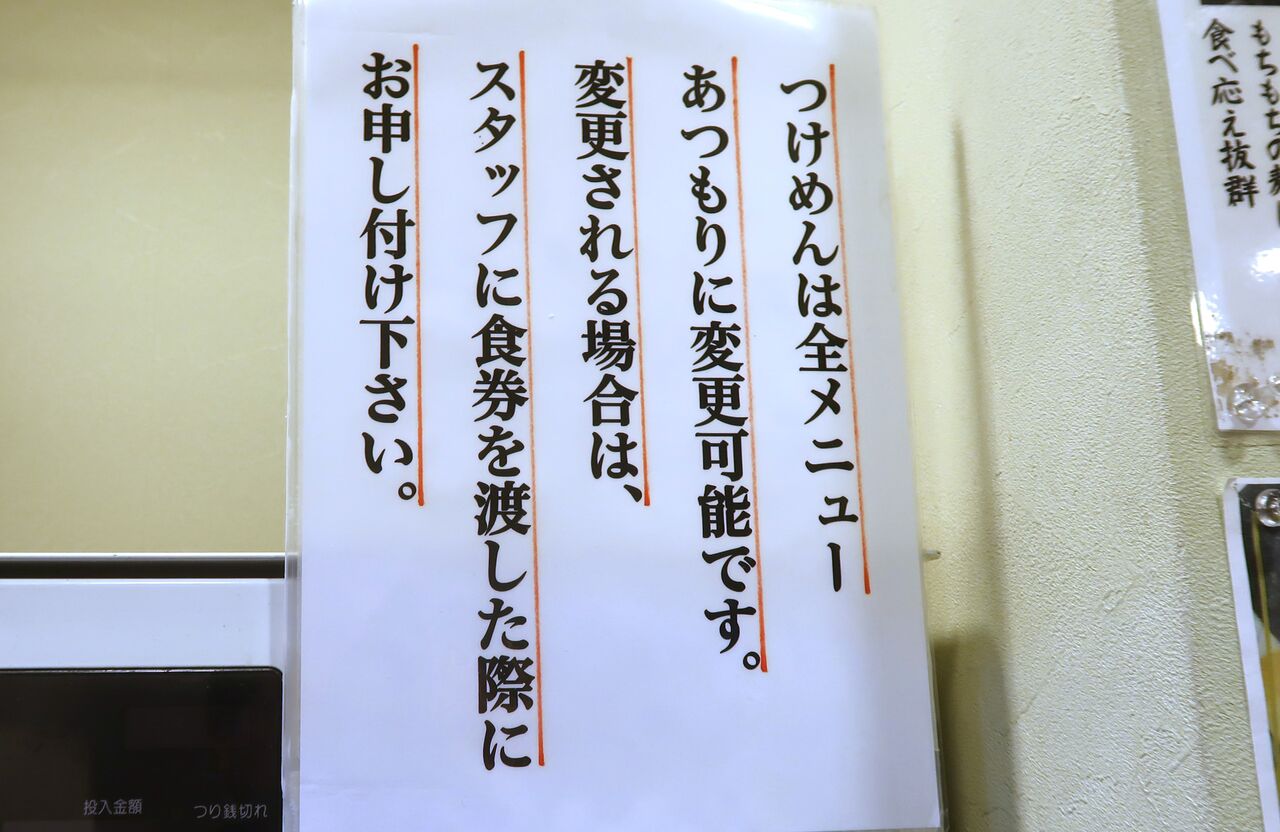 つけめんは全メニュー
あつもりに変更可能です。
変更される場合は、
スタッフに食券を渡した際に
お申し付け下さい。
もちもちの麺
食べ応え抜群
投入金額
つり銭切れ